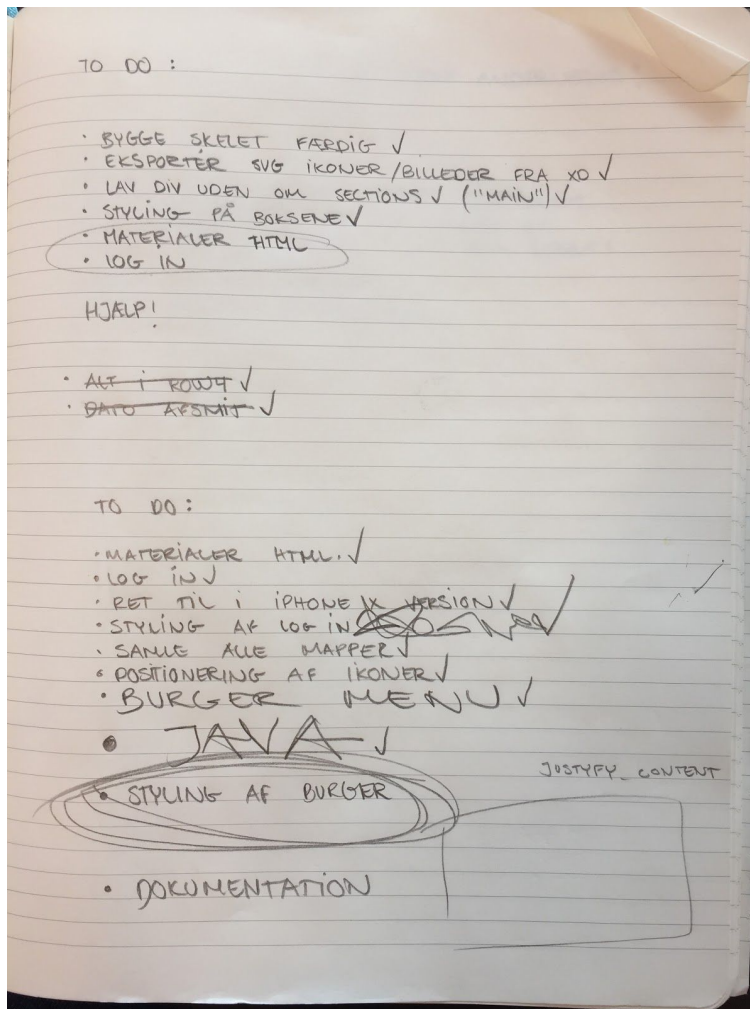 TO DO :
· BYGGE SKELET FÆRDIG ✓
· EKSPORTÉR SVG IKONER/BILLEDER FRA XD ✓
· LAV DIV UDEN OM SECTIONS ✓ ("MAIN") ✓
· STYLING PÅ BOKSENE ✓
· MATERIALER HTML
· LOG IN
HJÆLP!
· ALT I ✓
· DATO AFSNIT ✓
TO DO :
· MATERIALER HTML. ✓
· LOG IN ✓
· RET TIL I IPHONE X VERSION ✓
· STYLING AF LOG IN
· SAMLE ALLE MAPPER ✓
· POSITIONERING AF IKONER ✓
· BURGER MENU ✓
· JAVA ✓
JUSTYFY_CONTENT
· STYLING AF BURGER
· DOKUMENTATION